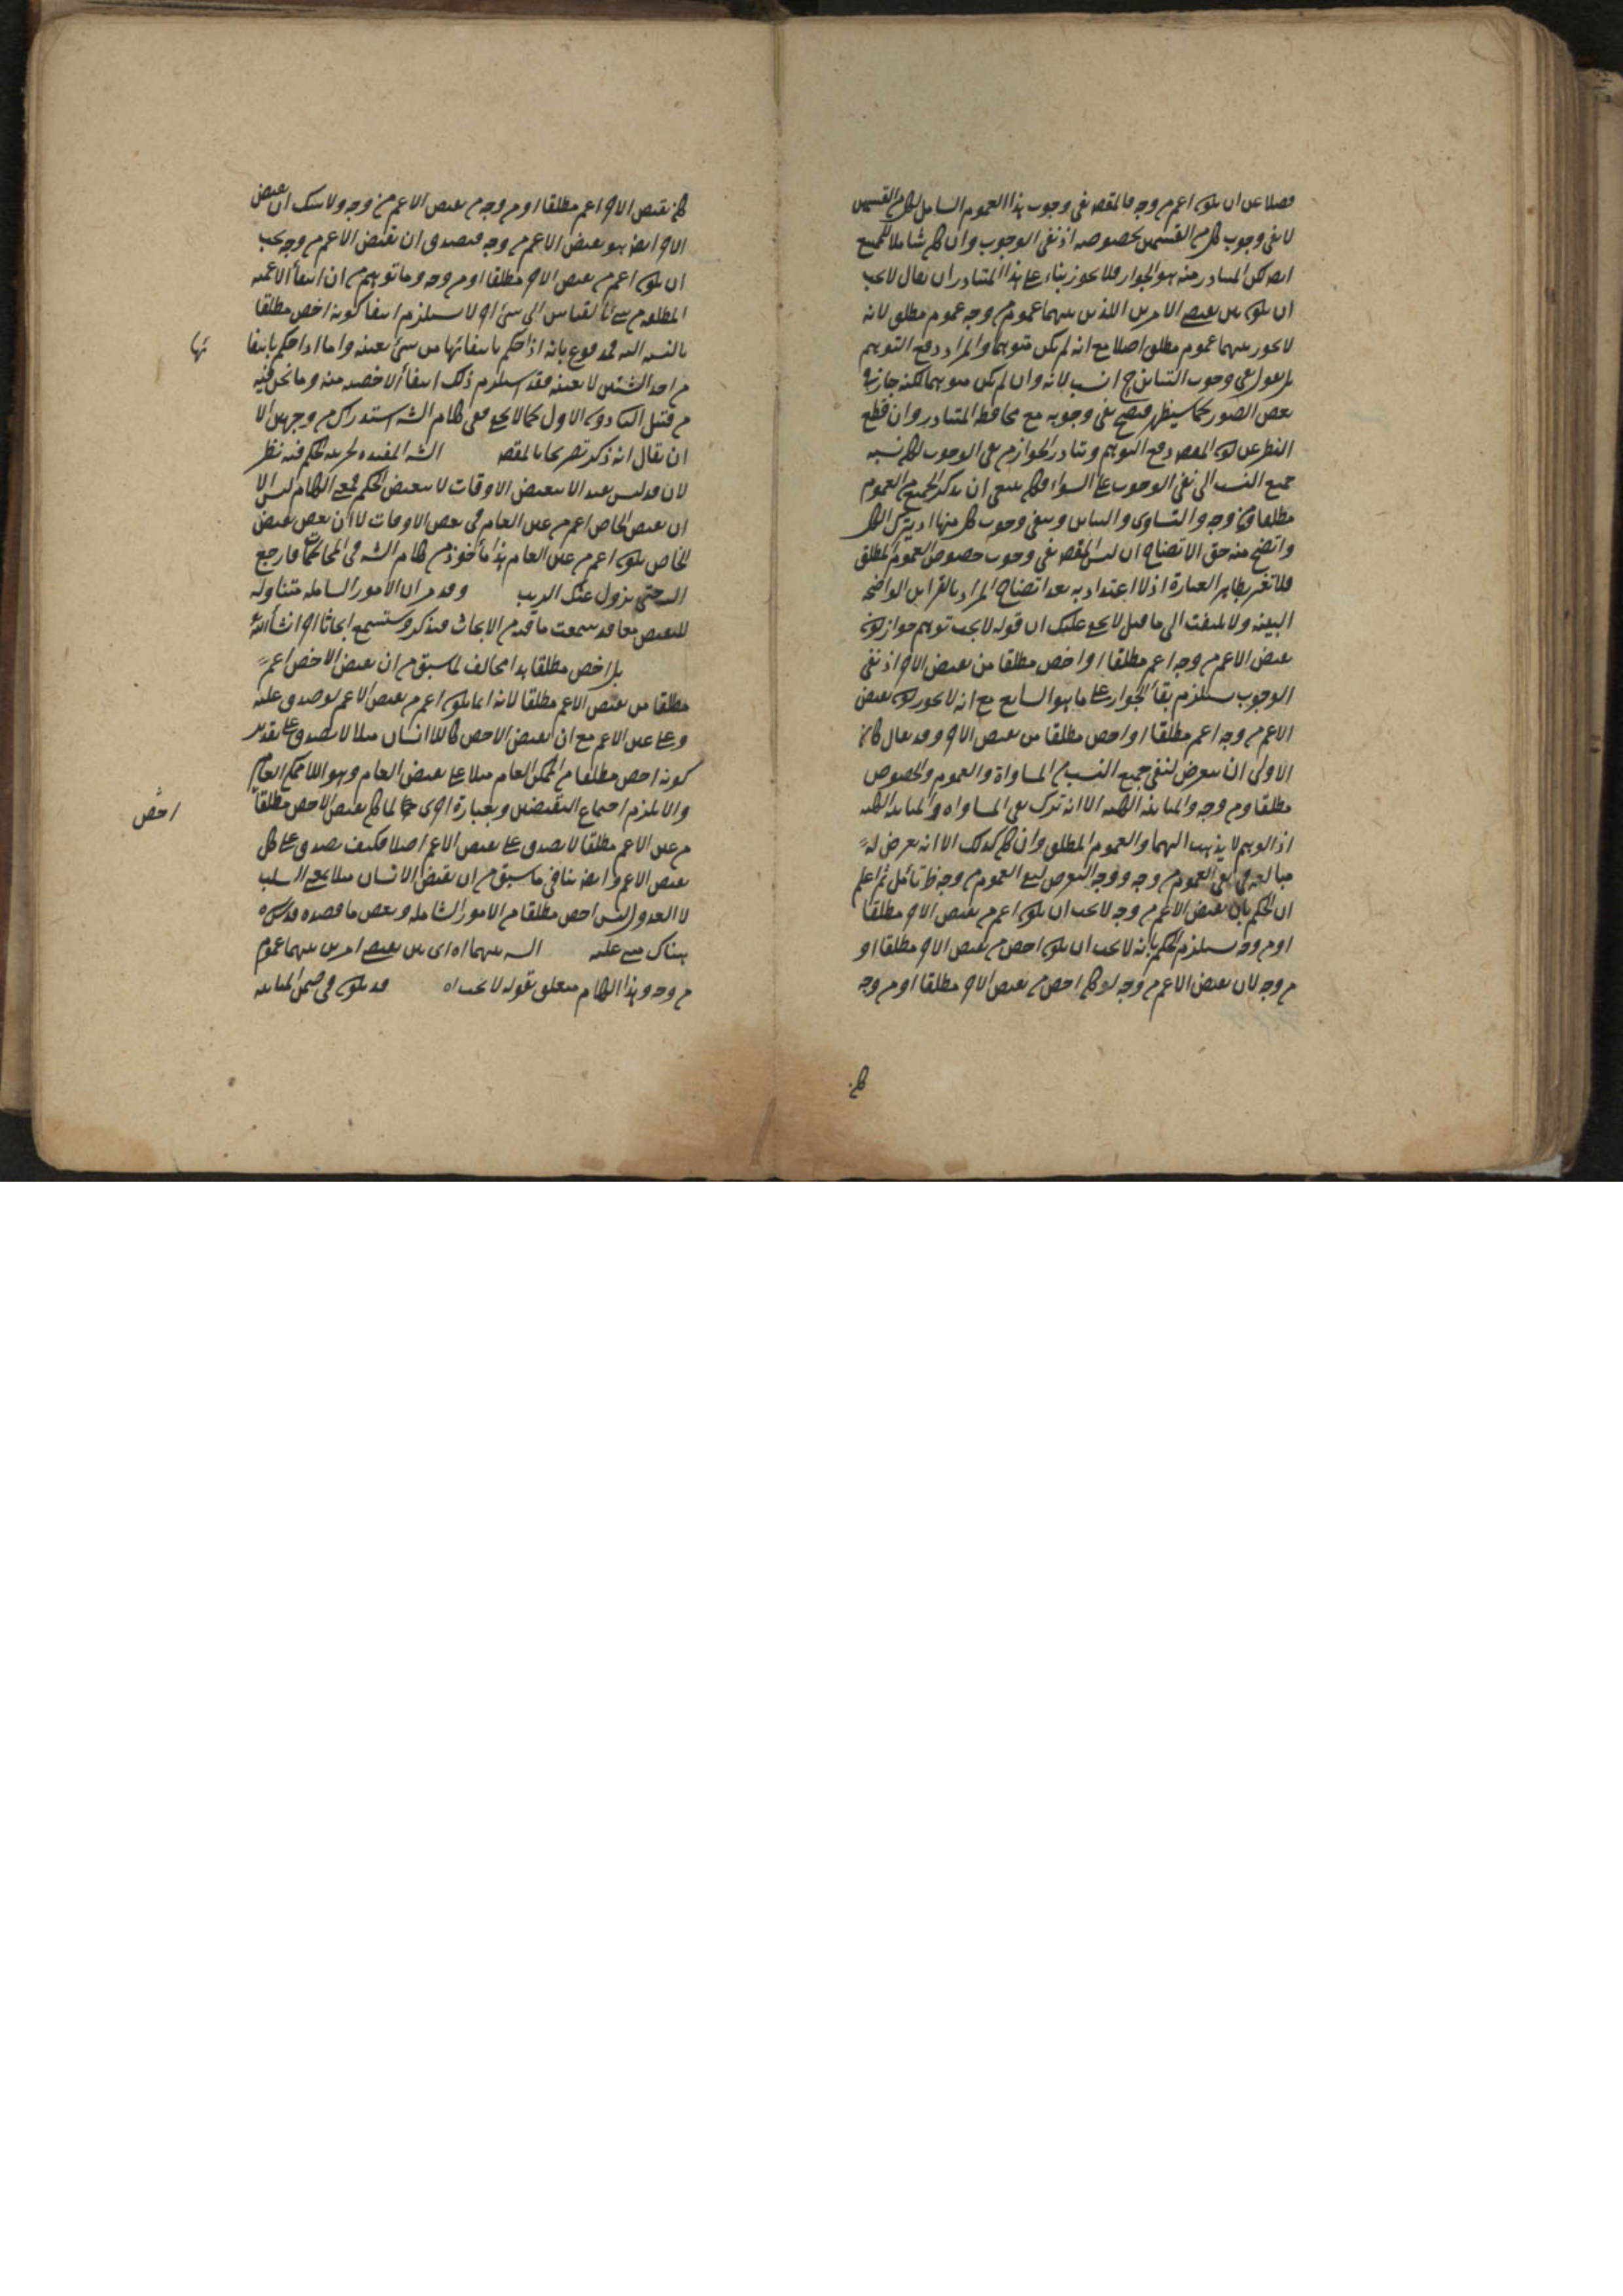 فضلا عن ان يكون اعم من وجه فالمقصه نفى وجوب هذا العموم الشامل لكل من القسمين
لا نفى وجوب كل من القسمين بخصوصه اذ نفى الوجوب وان كان شاملا للجميع
ايضه لكن المتبادر منه هو الجواز فلا يجوز بناء على هذا المتبادر ان يقال لا يجب
ان يكون بين نقيضى الامرين اللذين بينهما عموم من وجه عموم مطلق لانه
لا يجوز بينهما عموم مطلق اصلا مع انه لم يكن متوهما والمراد دفع التوهم
بل نقول نفى وجوب التباين ح انسب لانه وان لم يكن متوهما لكنه جاز فى
بعض الصور كما سيظهر فيصح نفى وجوبه مع محافظة المتبادر وان قطع
النظر عن كون المقصه دفع التوهم وتبادر الجواز من نفى الوجوب لكان نسبة
جميع النسب الى نفى الوجوب على السواء فكان ينبغى ان يذكر الجميع من العموم
مطلقا ومن وجه والتساوى والتباين وينفى وجوب كل منها او يترك الكل
واتضح منه حق الاتضاح ان ليس المقصه نفى وجوب خصوص العموم المطلق
فلا تغتر بظاهر العبارة اذ لا اعتداد به بعد اتضاح المراد بالقراين الواضحة
البينة ولا يلتفت الى ما قيل لا يخفى عليك ان قوله لا يجب توهم جواز كون
نقيض الاعم من وجه اعم مطلقا او اخص مطلقا من نقيض الاخر اذ نفى
الوجوب يستلزم بقأ الجواز على ما هو الشايع مع انه لا يجوز كون نقيض
الاعم من وجه اعم مطلقا او اخص مطلقا من نقيض الاخر وقد يقال كان
الاولى ان يتعرض لنفى جميع النسب من المساواة والعموم والخصوص
مطلقا ومن وجه والمباينة الكلية الا انه ترك نفى المساواه والمباينة الكلية
اذ الوهم لا يذهب اليهما والعموم المطلق وان كان كذلك الا انه تعرض له
مبالغة فى نفى العموم من وجه ووجه التعرض لنفى العموم من وجه ظ تأمل ثم اعلم
ان الحكم بان نقيض الاعم من وجه لا يجب ان يكون اعم من نقيض الاخر مطلقا
او من وجه يستلزم الحكم بانه لا يجب ان يكون اخص من نقيض الاخر مطلقا او
من وجه لان نقيض الاعم من وجه لو كان اخص من نقيض الاخر مطلقا او من وجه
كان
كان نقيض الاخر اعم مطلقا او من وجه من نقيض الاعم من وجه ولا شك ان نقيض
الاخر ايضه هو نقيض الاعم من وجه فيصدق ان نقيض الاعم من وجه يجب
ان يكون اعم من نقيض الاخر مطلقا او من وجه وما توهم من ان انتفأ الاعمية
المطلقة من شئ بالقياس الى شئ اخر لا يستلزم انتفا كونه اخص مطلقا
بالنسبه اليه فمدفوع بانه اذا حكم بانتفائها من شئ بعينه واما اذا حكم بانتفا
ئها
من احد الشيئين لا بعينه فقد استلزم ذلك انتفأ الاخصية منه وما نحن فيه
من قبيل الثانى دون الاول كما لا يخفى ففى كلام الشه استدراك من وجهين الا
ان يقال انه ذكر تصريحا بالمقصه الشه المفيدة لجزئية الحكم فيه نظر
لان قد ليس يفيد الا تبعيض الاوقات لا تبعيض الحكم فمعنى الكلام ليس الا
ان نقيض الخاص اعم من عين العام فى بعض الاوقات لا ان بعض نقيض
الخاص يكون اعم من عين العام هذا مأخوذ من كلام الشه فى المحاكمات فارجع
اليه حتى يزول عنك الريب وقد مر ان الامور الشاملة متناولة
للنقيضين معا قد سمعت ما فيه من الابحاث فتذكر وستسمع ابحاثا اخر انشأ الله
بل اخص مطلقا هذا مخالف لما سبق من ان نقيض الاخص اعم
مطلقا من نقيض الاعم مطلقا لانه انما يكون اعم من نقيض الاعم لو صدق عليه
وعلى عين الاعم مع ان نقيض الاخص كاللا انسان مثلا لا يصدق على تقدير
كونه اخص مطلقا من الممكن العام مثلا على نقيض العام وهو اللا ممكن العام
والا يلزم اجتماع النقيضين وبعبارة اخرى لما كان نقيض الاخص مطلقا
اخص
من عين الاعم مطلقا لا يصدق على نقيض الاعم اصلا فكيف يصدق على كل
نقيض الاعم وايضه ينافى ما سبق من ان نقيض الانسان مثلا بمعنى السلب
لا العدول ليس اخص مطلقا من الامور الشاملة وبعض ما قصده قدس سره
هناك مبنى عليه النسبه بينهما اه اى بين نقيضى امرين بينهما عموم
من وجه وهذا الكلام متعلق بقوله لا يجب اه قد يكون فى ضمن المباينه